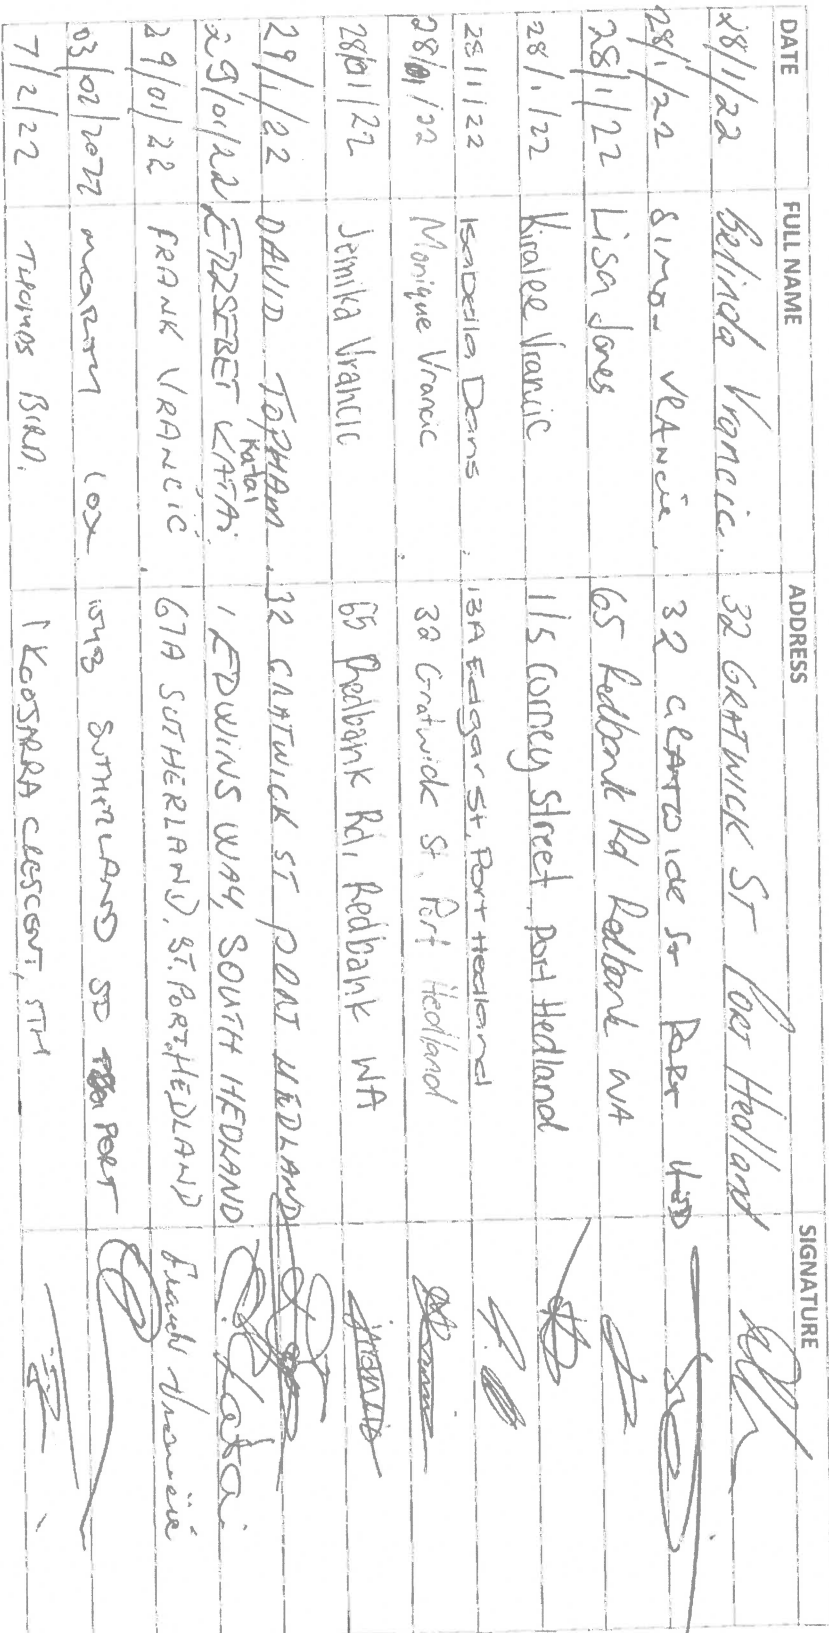 DATE FULL NAME ADDRESS SIGNATURE
28/1/22 Belinda Vrancic. 32 GRATWICK ST PORT Hedland
28/1/22 SIMON VRANCIC. 32 GRATWICK St PORT HED
28/1/22 Lisa Jones 65 Redbank Rd Redbank WA
28/1/22 Kiralee Vrancic 1/5 Corney Street, Port Hedland
28/1/22 Isabella Dans 13A Edgar St, Port Hedland
28/01/22 Monique Vrancic 32 Gratwick St, Port Hedland
28/01/22 Jemika Vrancic 65 Redbank Rd, Redbank WA
29/1/22 DAVID TOPHAM. 32 GRATWICK ST PORT HEDLAND
29/01/22 ERZSEBET KATAI Katai 1 EDWINS WAY, SOUTH HEDLAND E. Katai
29/01/22 FRANK VRANCIĆ 67A SUTHERLAND, ST. PORT, HEDLAND Frank Vrancić
03/02/2022 MARTIN COX SUTHERLAND ST PORT
7/2/22 THOMAS BIRD. 1 KOOJARRA CRESCENT, STH